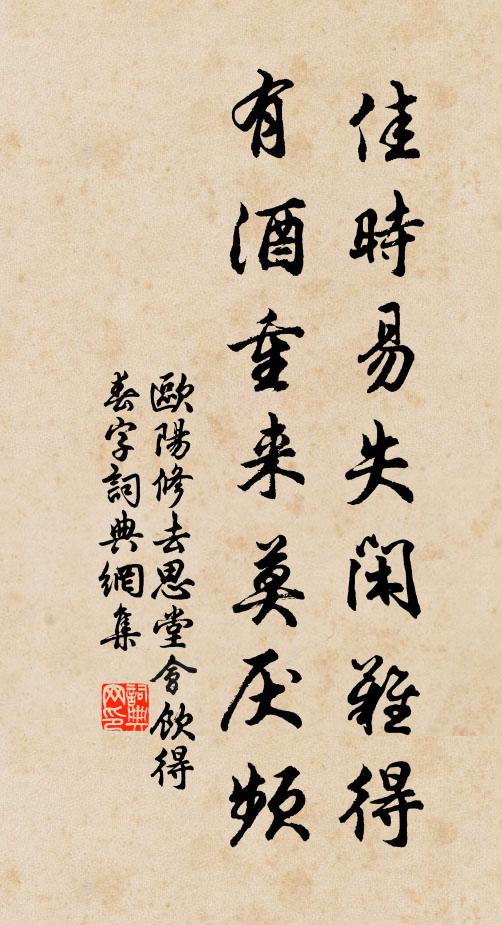 佳時易失閑難得
有酒重来莫厌頻
歐陽修去思堂會飲得
春字詞典網集
詞典网印